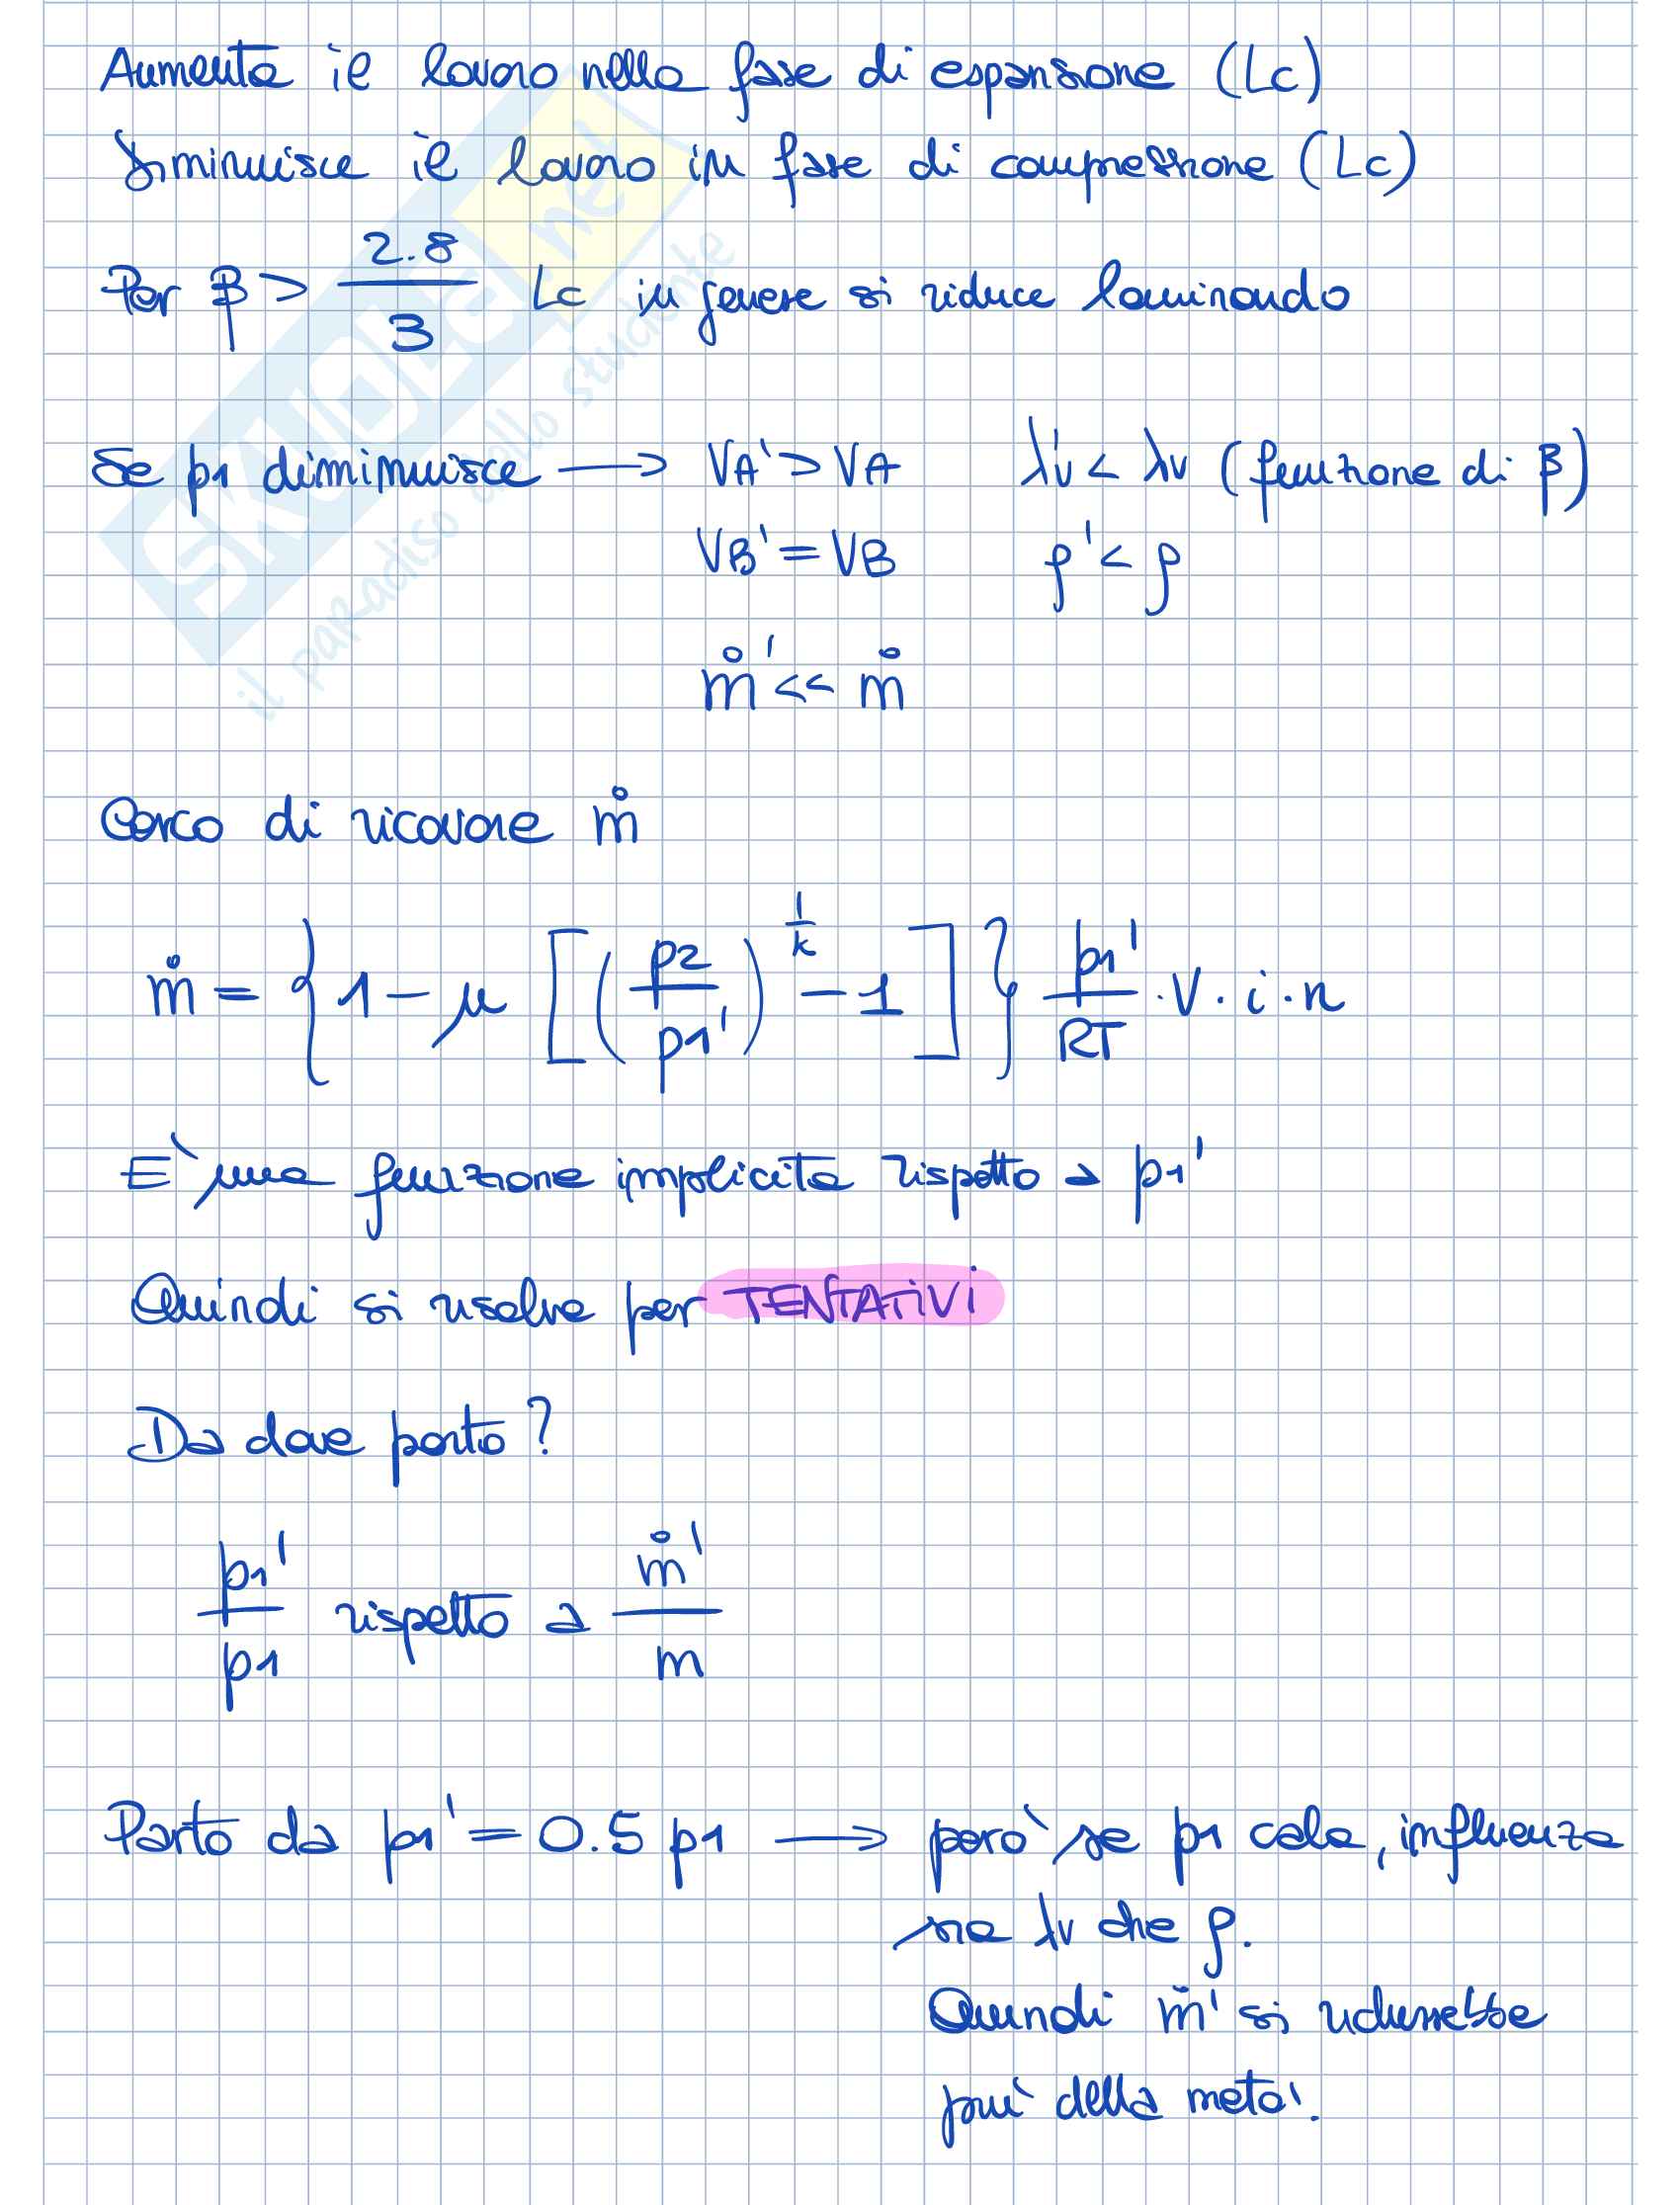 Aumenta il lavoro nella fase di espansione (Lc)
Diminuisce il lavoro in fase di compressione (Lc)
Per β > 2.8/3 Lc in genere si riduce laminando
Se p1 dimimuisce → VA' > VA λv' < λv (funzione di β)
VB' = VB ρ' < ρ
ṁ' << ṁ
Cerco di ricavare ṁ
ṁ = {1 − μ [(p2/p1')^(1/k) − 1]} p1'/RT · V · i · n
E' una funzione implicita rispetto a p1'
Quindi si risolve per TENTATIVI
Da dove parto?
p1'/p1 rispetto a ṁ'/m
Parto da p1' = 0.5 p1 → però se p1 cala, influenza
sia λv che ρ.
Quindi ṁ' si ridurrebbe
più della metà.
SKUOLA.net
il paradiso dello studente